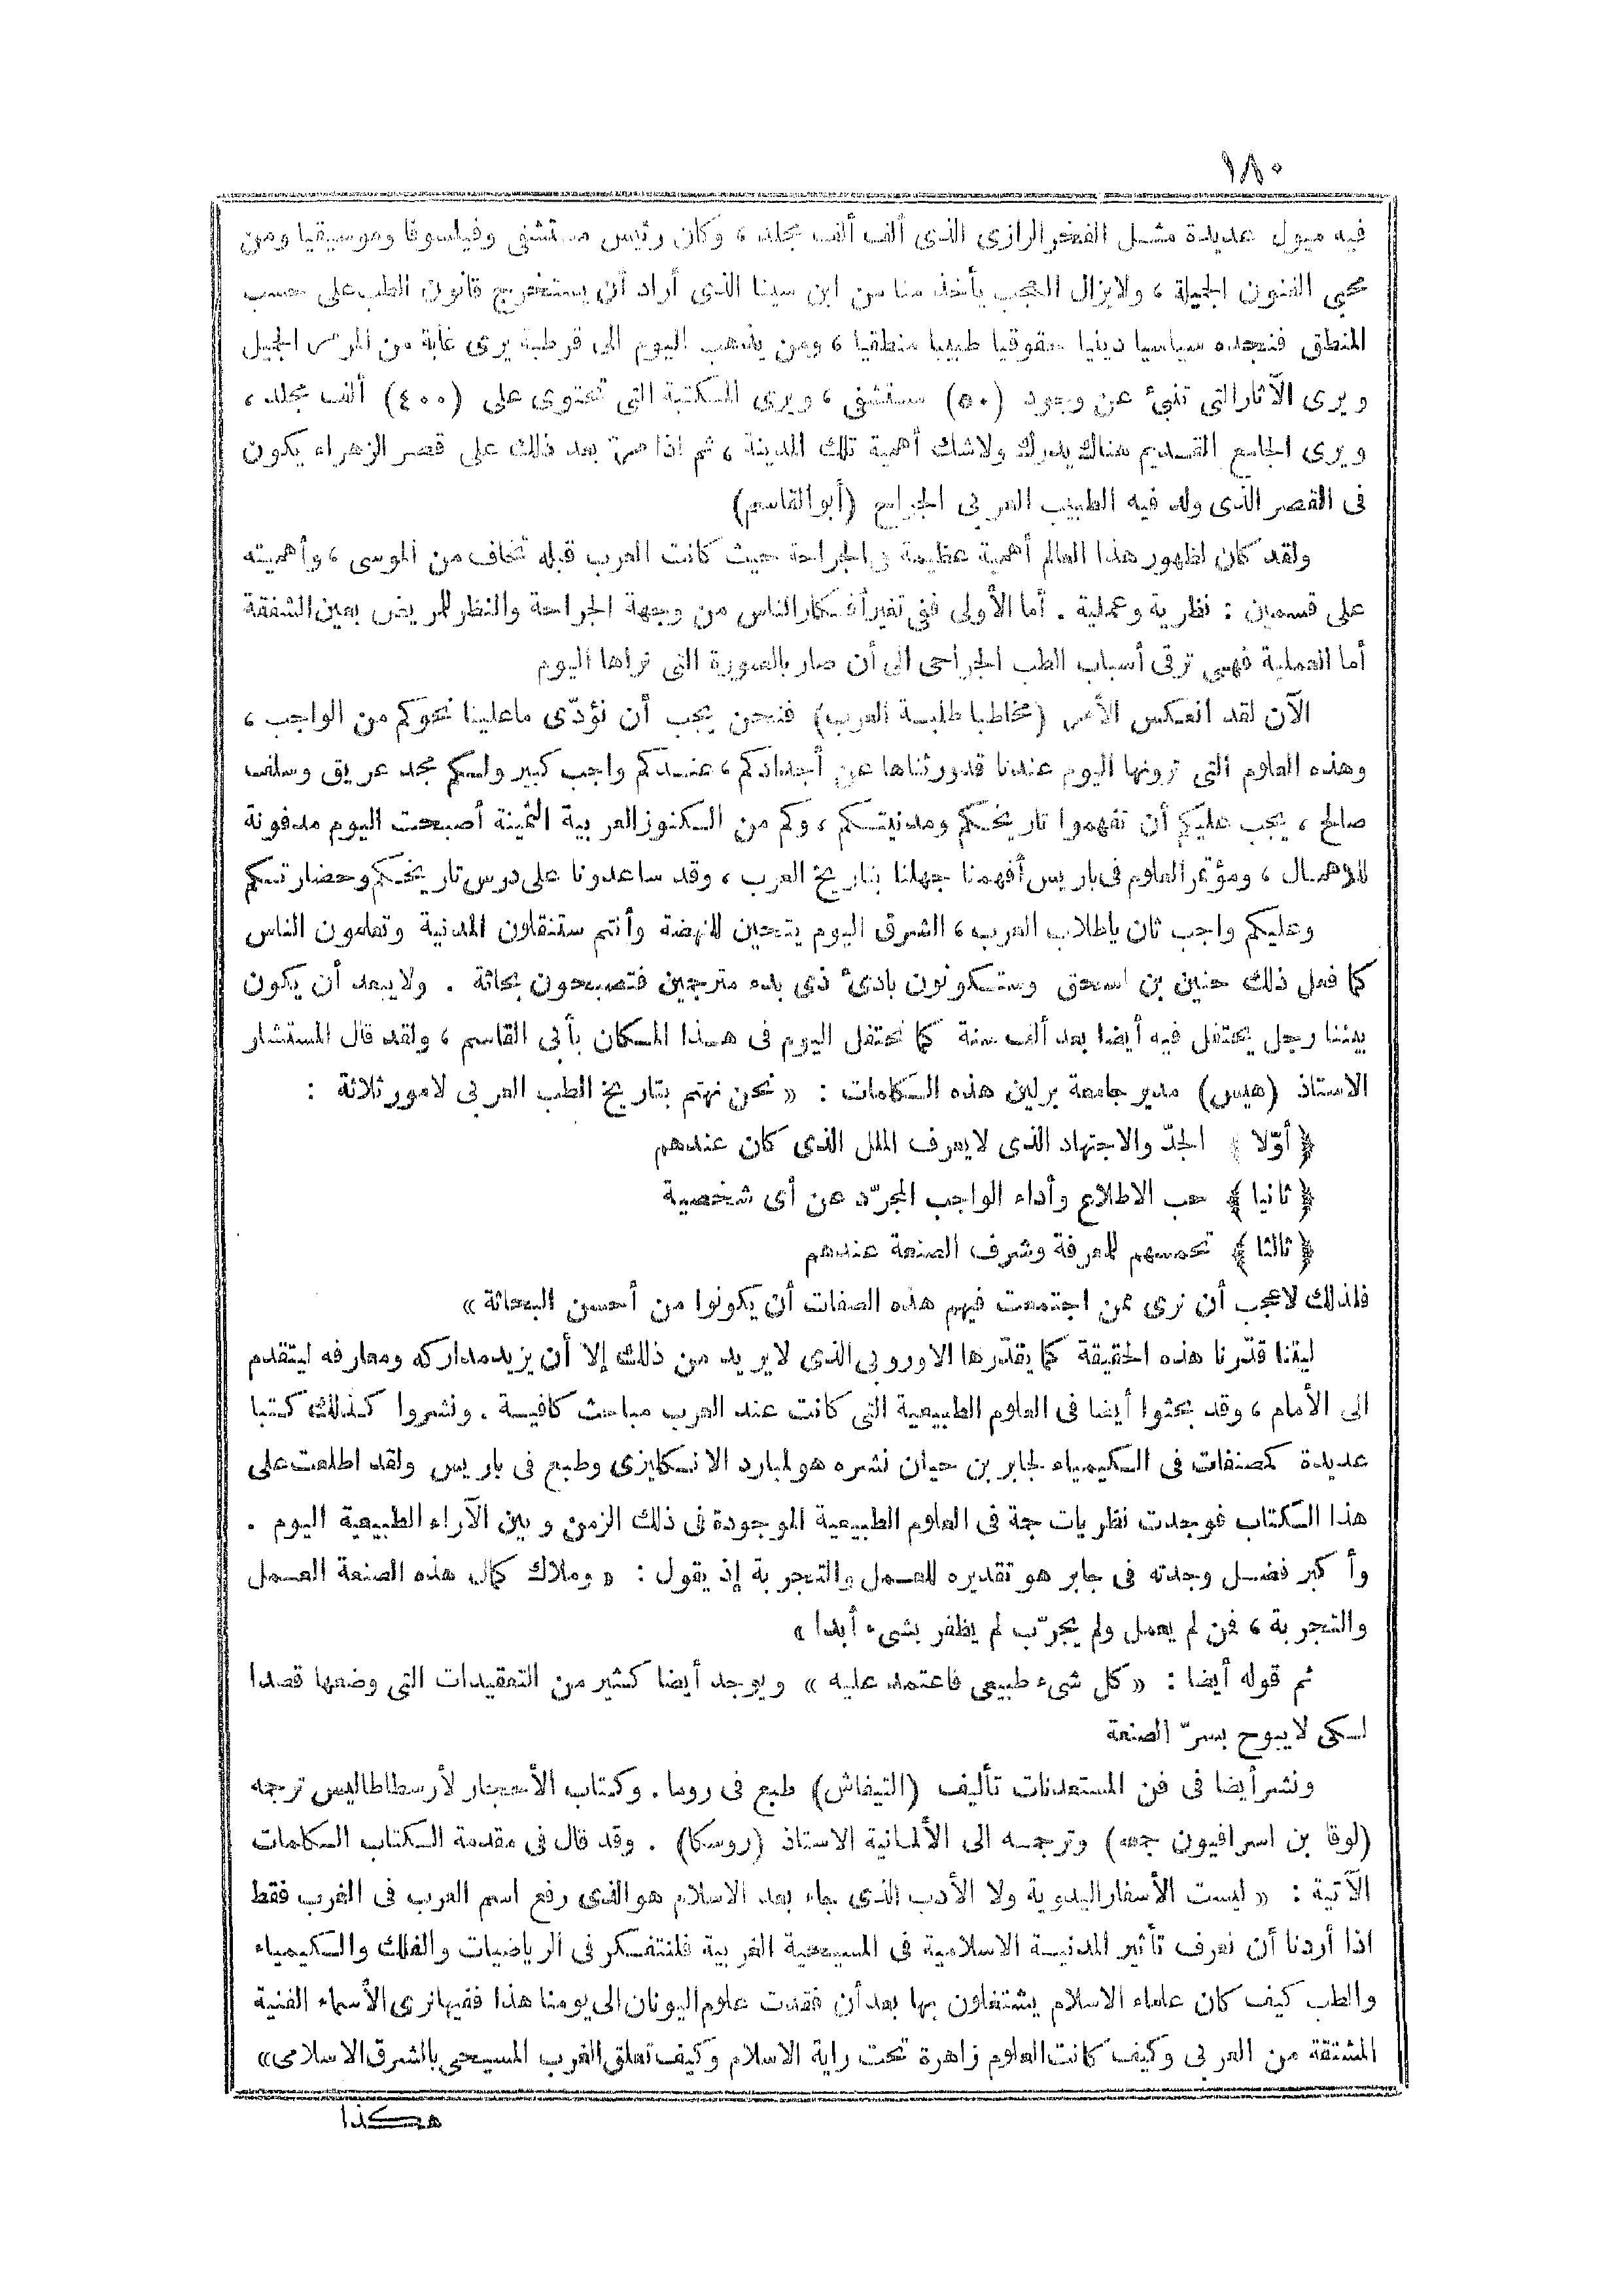 ١٨٠
فيه ميول عديدة مثل الفخر الرازى الذى ألف ألف مجلد ، وكان رئيس مستشفى وفيلسوفا وموسيقيا ومن
محبى الفنون الجميلة ، ولا يزال العجب يأخذ منا من ابن سينا الذى أراد أن يستخرج قانون الطب على حسب
المنطق فنجده سياسيا دينيا حقوقيا طبيبا منطقيا ، ومن يذهب اليوم الى قرطبة يرى غابة من المرمر الجميل
ويرى الآثار التى تنبئ عن وجود (٥٠) مستشفى ، ويرى المكتبة التى تحتوى على (٤٠٠) ألف مجلد ،
ويرى الجامع القديم هناك يدرك ولاشك أهمية تلك المدينة ، ثم اذا مرّ بعد ذلك على قصر الزهراء يكون
فى القصر الذى ولد فيه الطبيب العربى الجراح (أبو القاسم)
ولقد كان لظهور هذا العالم أهمية عظيمة فى الجراحة حيث كانت العرب قبله تخاف من الموسى ، وأهميته
على قسمين : نظرية وعملية . أما الأولى ففى تغير أفكار الناس من وجهة الجراحة والنظر للمريض بعين الشفقة
أما العملية فهى ترقى أسباب الطب الجراحى الى أن صار بالصورة التى نراها اليوم
الآن لقد انعكس الأمر (مخاطبا طلبة العرب) فنحن يجب أن نؤدّى ماعلينا نحوكم من الواجب ،
وهذه العلوم التى ترونها اليوم عندنا قد ورثناها عن أجدادكم ، عندكم واجب كبير ولكم مجد عريق وسلف
صالح ، يجب عليكم أن تفهموا تاريخكم ومدنيتكم ، وكم من الكنوز العربية الثمينة أصبحت اليوم مدفونة
للاهمال ، ومؤتمر العلوم فى باريس أفهمنا جهلنا بتاريخ العرب ، وقد ساعدونا على درس تاريخكم وحضارتكم
وعليكم واجب ثان ياطلاب العرب ، الشرق اليوم يتحين للنهضة وأنتم ستنقلون المدنية وتعلمون الناس
كما فعل ذلك حنين بن اسحق وستكونون بادئ ذى بدء مترجمين فتصبحون بحاثة . ولا يبعد أن يكون
بيننا رجل يحتفل فيه أيضا بعد ألف سنة كما نحتفل اليوم فى هذا المكان بأبى القاسم ، ولقد قال المستشار
الاستاذ (هيس) مدير جامعة برلين هذه الكلمات : « نحن نهتم بتاريخ الطب العربى لامور ثلاثة :
﴿ أوّلا ﴾ الجدّ والاجتهاد الذى لايعرف الملل الذى كان عندهم
﴿ ثانيا ﴾ حب الاطلاع وأداء الواجب المجرّد عن أى شخصية
﴿ ثالثا ﴾ تحمسهم للمعرفة وشرف الصنعة عندهم
فلذلك لاعجب أن نرى ممن اجتمعت فيهم هذه الصفات أن يكونوا من أحسن البحاثة »
ليتنا قدّرنا هذه الحقيقة كما يقدّرها الاوروبى الذى لا يريد من ذلك إلا أن يزيد مداركه ومعارفه ليتقدم
الى الأمام ، وقد بحثوا أيضا فى العلوم الطبيعية التى كانت عند العرب مباحث كافية . ونشروا كذلك كتبا
عديدة كمصنفات فى الكيمياء لجابر بن حيان نشره هولمبارد الانكليزى وطبع فى باريس ولقد اطلعت على
هذا الكتاب فوجدت نظريات جمة فى العلوم الطبيعية الموجودة فى ذلك الزمن وبين الآراء الطبيعية اليوم .
وأكبر فضل وجدته فى جابر هو تقديره للعمل والتجربة إذ يقول : « وملاك كمال هذه الصنعة العمل
والتجربة ، فمن لم يعمل ولم يجرّب لم يظفر بشىء أبدا »
ثم قوله أيضا : « كل شىء طبيعى فاعتمد عليه » ويوجد أيضا كثير من التعقيدات التى وضعها قصدا
لكى لا يبوح بسرّ الصنعة
ونشر أيضا فى فن المستعدنات تأليف (التيفاش) طبع فى روما . وكتاب الأحجار لأرسطاطاليس ترجمه
(لوقا بن اسرافيون جمه) وترجمه الى الألمانية الاستاذ (روسكا) . وقد قال فى مقدمة الكتاب الكلمات
الآتية : « ليست الأسفار البدوية ولا الأدب الذى جاء بعد الاسلام هو الذى رفع اسم العرب فى الغرب فقط
اذا أردنا أن نعرف تأثير المدنية الاسلامية فى المسيحية الغربية فلنتفكر فى الرياضيات والفلك والكيمياء
والطب كيف كان علماء الاسلام يشتغلون بها بعد أن فقدت علوم اليونان الى يومنا هذا ففيها نرى الأسماء الفنية
المشتقة من العربى وكيف كانت العلوم زاهرة تحت راية الاسلام وكيف تعلق الغرب المسيحى بالشرق الاسلامى»
هكذا